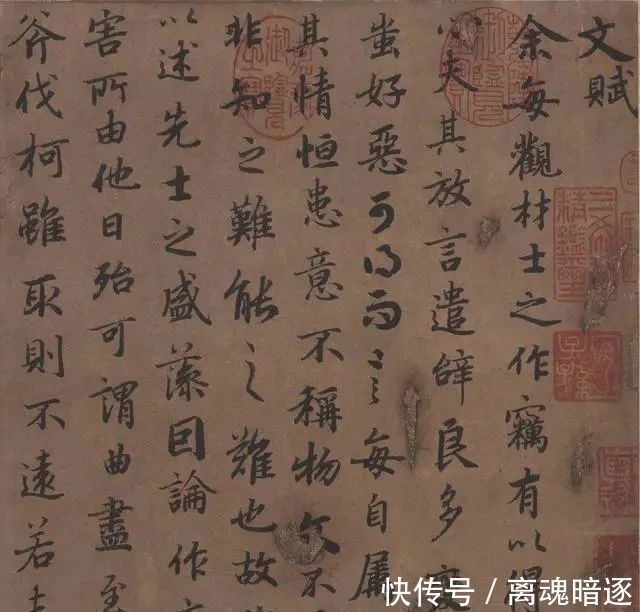 文賦
余每觀材士之作竊有以得
心夫其放言遣辭良多變
蚩好惡可得而言每自屬
其情恒患意不稱物文不
非知之難能之難也故
以述先士之盛藻因論作
害所由他日殆可謂曲盡至
斧伐柯雖取則不遠若
快传号／离魂暗逐